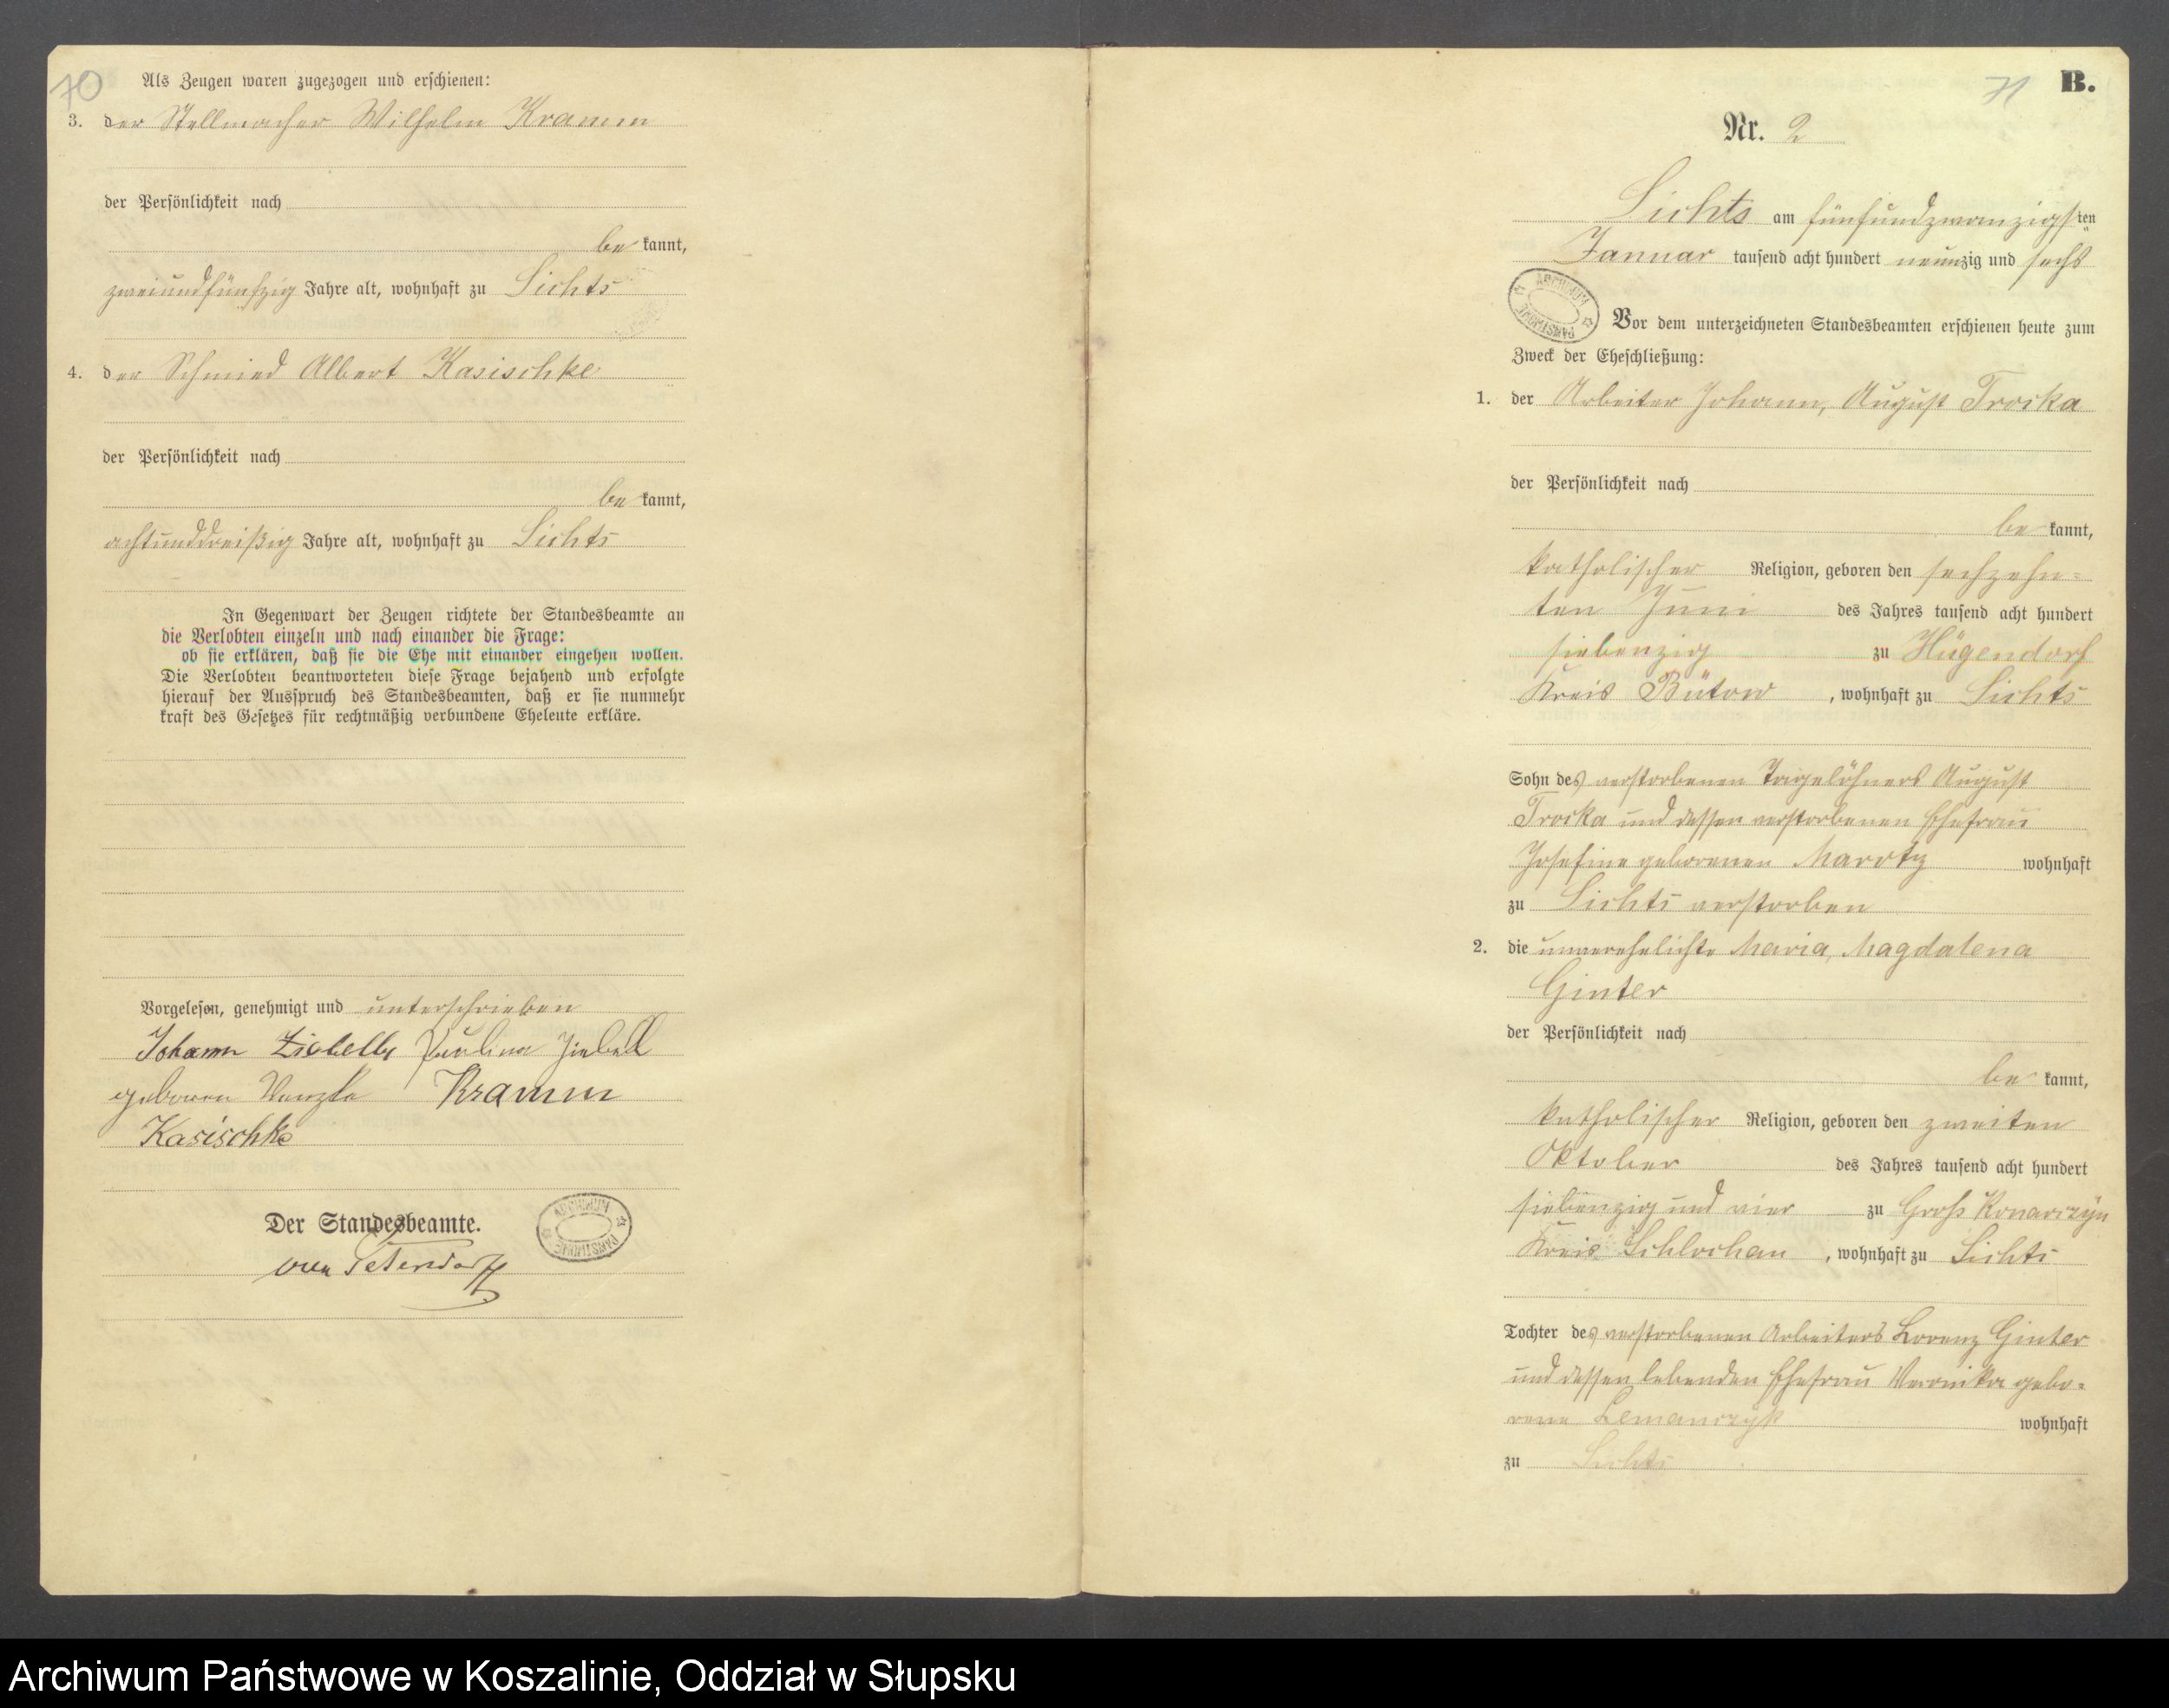 70
Als Zeugen waren zugezogen und erschienen:
3. der Stellmacher Wilhelm Kramm
der Persönlichkeit nach
be kannt,
zweiundfünfzig Jahre alt, wohnhaft zu Sichts
4. der Schmied Albert Kasischke
der Persönlichkeit nach
be kannt,
achtunddreißig Jahre alt, wohnhaft zu Sichts
In Gegenwart der Zeugen richtete der Standesbeamte an
die Verlobten einzeln und nach einander die Frage:
ob sie erklären, daß sie die Ehe mit einander eingehen wollen.
Die Verlobten beantworteten diese Frage bejahend und erfolgte
hierauf der Ausspruch des Standesbeamten, daß er sie nunmehr
kraft des Gesetzes für rechtmäßig verbundene Eheleute erkläre.
Vorgelesen, genehmigt und unterschrieben
Johann Paulina
geboren Kramm
Kasischke
Der Standesbeamte.
ARCHIWUM PAŃSTWOWE
71
B.
Nr. 2
Sichts am fünfundzwanzigsten
Januar tausend acht hundert neunzig und sechs
ARCHIWUM PAŃSTWOWE
Vor dem unterzeichneten Standesbeamten erschienen heute zum
Zweck der Eheschließung:
1. der Arbeiter Johann, August Troska
der Persönlichkeit nach
be kannt,
katholischer Religion, geboren den sechzehn=
ten Juni des Jahres tausend acht hundert
siebenzig zu Hügendorf
Kreis Bütow, wohnhaft zu Sichts
Sohn des verstorbenen Tagelöhners August
Troska und dessen verstorbenen Ehefrau
Josefine geborenen Marotz wohnhaft
zu Sichts verstorben
2. die unverehelichte Maria, Magdalena
Ginter
der Persönlichkeit nach
be kannt,
katholischer Religion, geboren den zweiten
Oktober des Jahres tausend acht hundert
siebenzig und vier zu Groß Konarczyn
Kreis Schlochau, wohnhaft zu Sichts
Tochter des verstorbenen Arbeiters Lorenz Ginter
und dessen lebenden Ehefrau Veronika gebo=
rene Lemanczyk wohnhaft
zu Sichts
Archiwum Państwowe w Koszalinie, Oddział w Słupsku